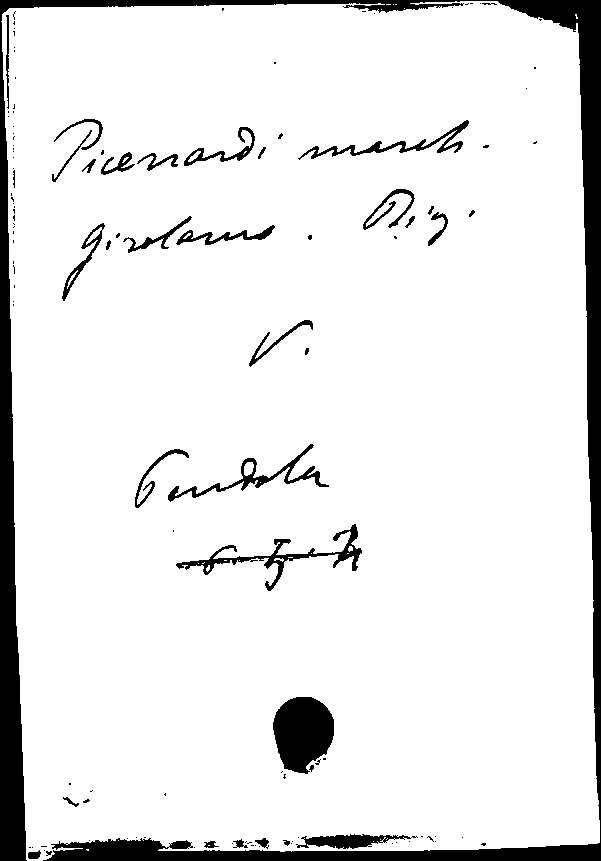 Picenardi march.
Girolamo. Rig.
V.
Pandola